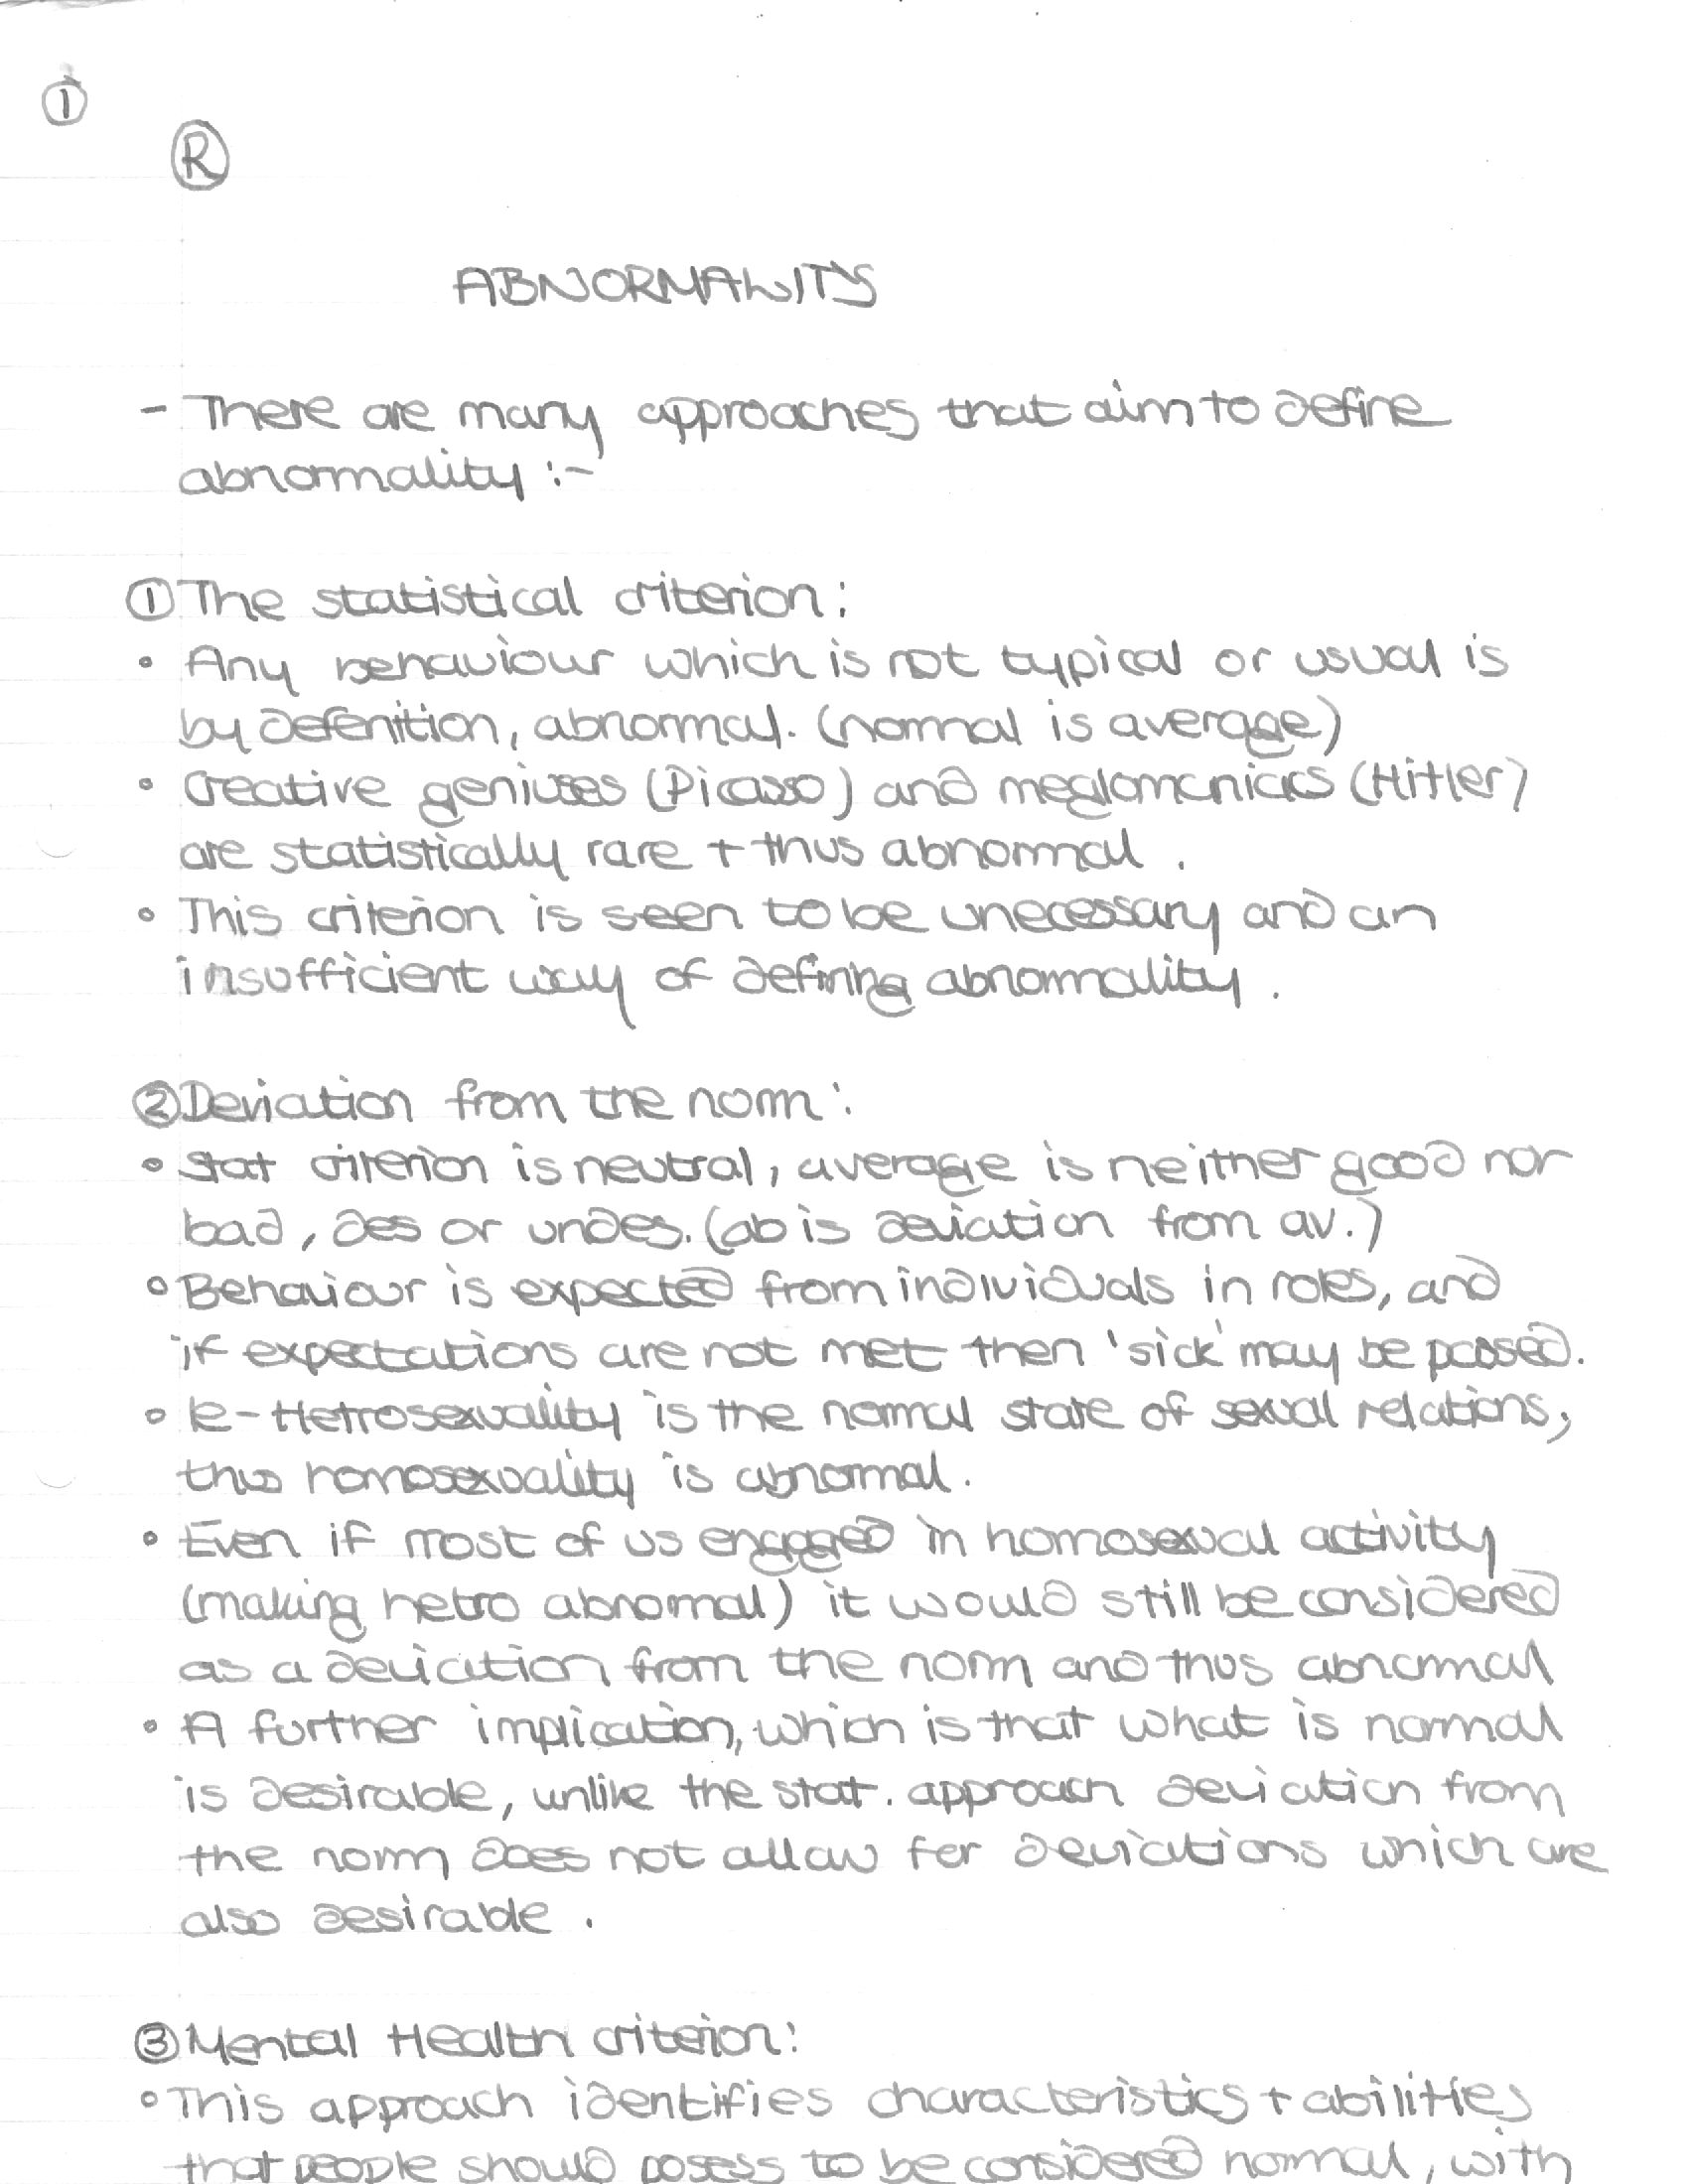 1
R
ABNORMALITY
- There are many approaches that aim to define
abnormality :-
① The statistical criterion:
• Any behaviour which is not typical or usual is
by defenition, abnormal. (normal is average)
• Creative geniuses (Picasso) and meglomanicks (Hitler)
are statistically rare + thus abnormal.
• This criterion is seen to be unecessary and an
insufficient way of defining abnormality.
② Deviation from the norm:
• Stat criterion is neutral, average is neither good nor
bad, des or undes. (ab is deviation from av.)
• Behaviour is expected from individuals in roles, and
if expectations are not met then 'sick' may be passed.
• Ie - Hetrosexuality is the normal state of sexual relations,
thus homosexuality is abnormal.
• Even if most of us engaged in homosexual activity
(making hetro abnormal) it would still be considered
as a deviation from the norm and thus abnormal
• A further implication, which is that what is normal
is desirable, unlike the stat. approach deviation from
the norm does not allow for deviations which are
also desirable.
③ Mental Health criterion:
• This approach identifies characteristics + abilities
that people should posess to be considered normal, with